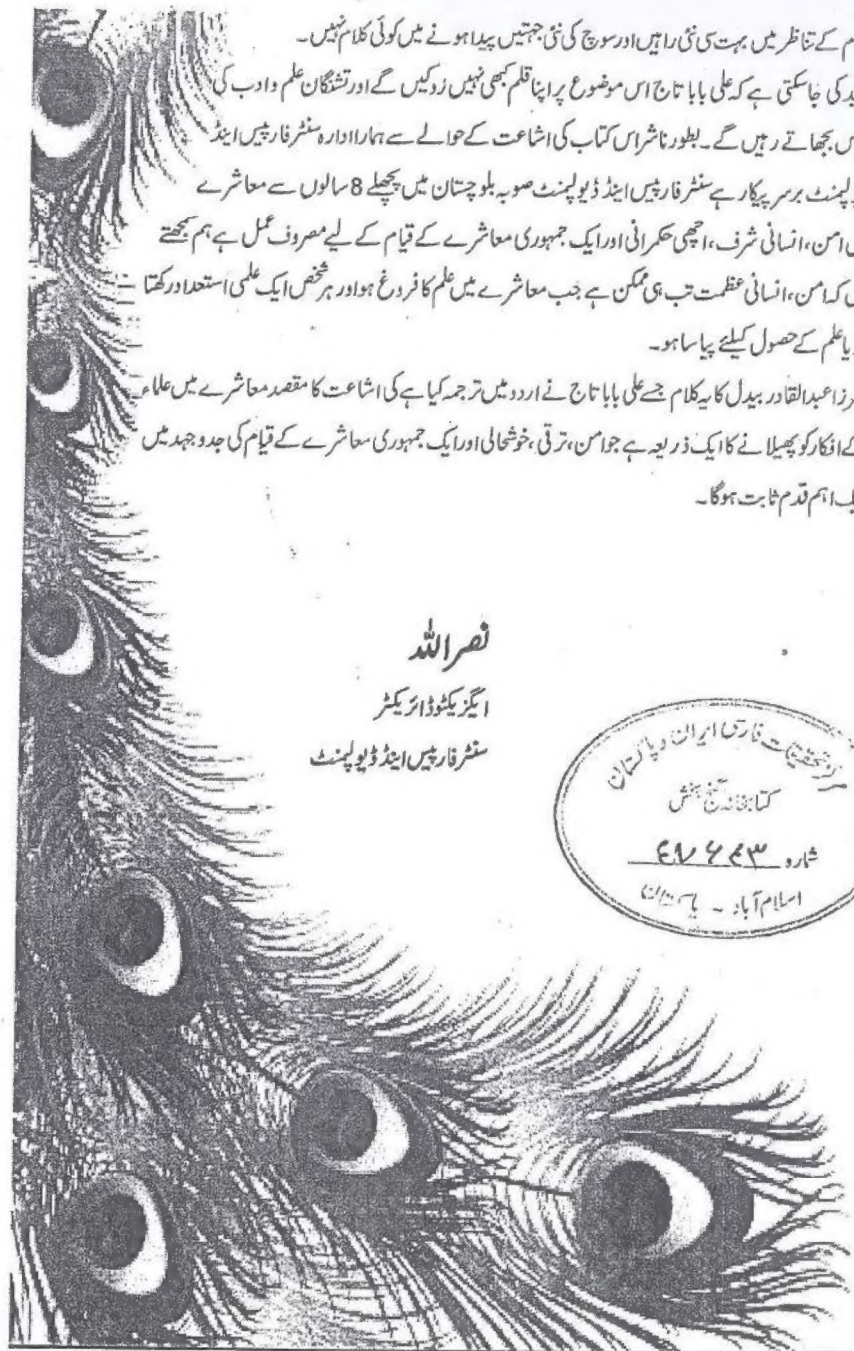 م کے تناظر میں بہت سی نئی راہیں اور سوچ کی نئی جہتیں پیدا ہونے میں کوئی کلام نہیں۔
ید کی جاسکتی ہے کہ علی بابا تاج اس موضوع پر اپنا قلم کبھی نہیں روکیں گے اور تشنگان علم و ادب کی
س بجھاتے رہیں گے۔ بطور ناشر اس کتاب کی اشاعت کے حوالے سے ہمارا ادارہ سنٹر فار پیس اینڈ
یولپمنٹ برسر پیکار ہے سنٹر فار پیس اینڈ ڈیولپمنٹ صوبہ بلوچستان میں پچھلے 8 سالوں سے معاشرے
ں امن، انسانی شرف، اچھی حکمرانی اور ایک جمہوری معاشرے کے قیام کے لیے مصروف عمل ہے ہم سمجھتے
ں کہ امن، انسانی عظمت تب ہی ممکن ہے جب معاشرے میں علم کا فروغ ہو اور ہر شخص ایک علمی استعداد رکھتا
یا علم کے حصول کیلئے پیاسا ہو۔
رزا عبدالقادر بیدل کا یہ کلام جسے علی بابا تاج نے اردو میں ترجمہ کیا ہے کی اشاعت کا مقصد معاشرے میں علماء
کے افکار کو پھیلانے کا ایک ذریعہ ہے جو امن، ترقی، خوشحالی اور ایک جمہوری معاشرے کے قیام کی جدوجہد میں
یک اہم قدم ثابت ہوگا۔
نصر اللہ
ایگزیکٹو ڈائریکٹر
سنٹر فار پیس اینڈ ڈیولپمنٹ
مرکز تحقیقات فارسی ایران و پاکستان
کتابخانہ گنج بخش
شمارہ
اسلام آباد - پاکستان